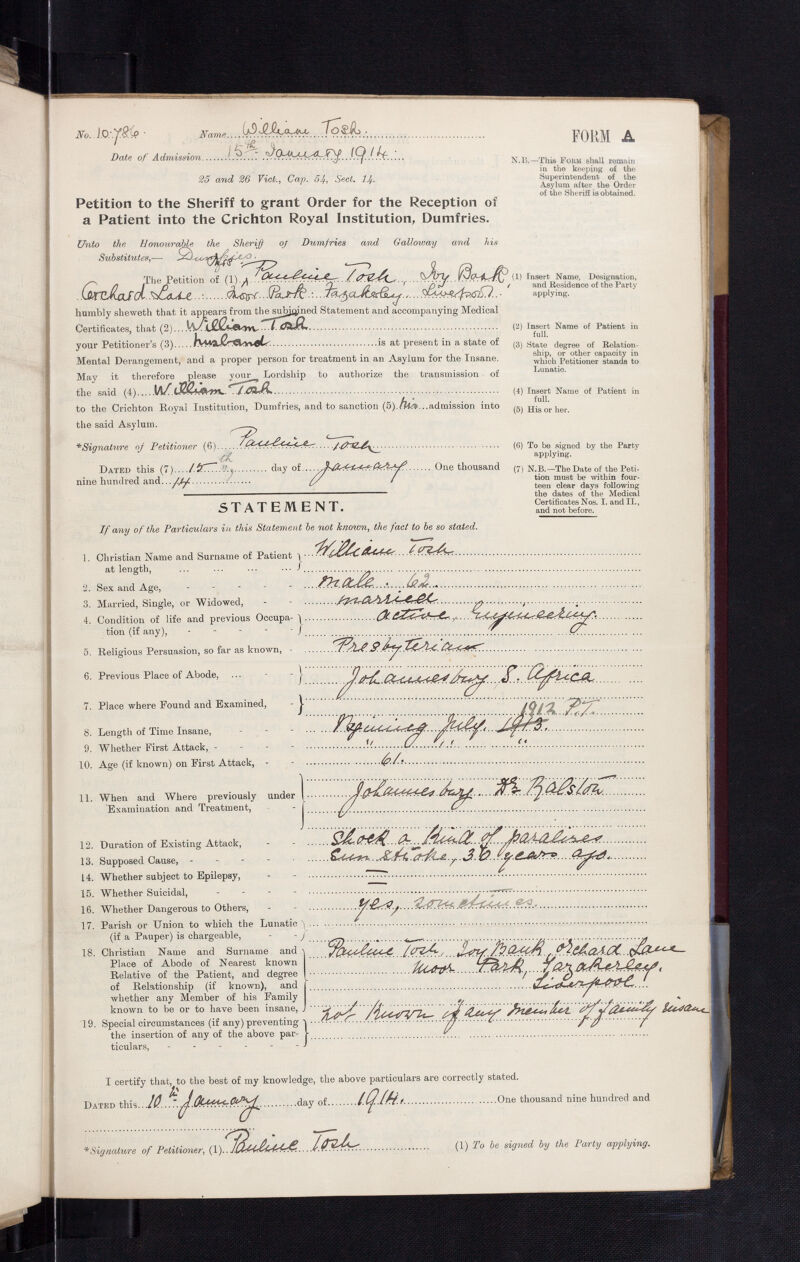 No. 10.786. Name William Tosh. FORM A
Date of Admission 15th January 1914.
25 and 26 Vict., Cap. 54, Sect. 14.
N.B.—This Form shall remain
in the keeping of the
Superintendent of the
Asylum after the Order
of the Sheriff is obtained.
Petition to the Sheriff to grant Order for the Reception of
a Patient into the Crichton Royal Institution, Dumfries.
Unto the Honourable the Sheriff of Dumfries and Galloway and his
Substitutes,— Dumfries.
The Petition of (1) Mrs Pauline Tosh, Ivy Bank,
Orchard Lane Moor Park Fazakerley Liverpool.
(1) Insert Name, Designation,
and Residence of the Party
applying.
humbly sheweth that it appears from the subjoined Statement and accompanying Medical
Certificates, that (2) William Tosh
your Petitioner's (3) husband is at present in a state of
Mental Derangement, and a proper person for treatment in an Asylum for the Insane.
May it therefore please your Lordship to authorize the transmission of
the said (4) William Tosh
to the Crichton Royal Institution, Dumfries, and to sanction (5) his admission into
the said Asylum.
(2) Insert Name of Patient in
full.
(3) State degree of Relation-
ship, or other capacity in
which Petitioner stands to
Lunatic.
(4) Insert Name of Patient in
full.
(5) His or her.
*Signature of Petitioner (6) Pauline Tosh
(6) To be signed by the Party
applying.
Dated this (7) 15th day of January One thousand
nine hundred and 14
(7) N.B.—The Date of the Peti-
tion must be within four-
teen clear days following
the dates of the Medical
Certificates Nos. I. and II.,
and not before.
STATEMENT.
If any of the Particulars in this Statement be not known, the fact to be so stated.
1. Christian Name and Surname of Patient
at length, William Tosh
2. Sex and Age, male. 62.
3. Married, Single, or Widowed, married
4. Condition of life and previous Occupa-
tion (if any), active, Engineering.
5. Religious Persuasion, so far as known, Presbyterian
6. Previous Place of Abode, Johannesburg S. Africa
7. Place where Found and Examined,
1912 P.T.
8. Length of Time Insane, Begining July. 1913.
9. Whether First Attack, " " "
10. Age (if known) on First Attack, 61.
11. When and Where previously under
Examination and Treatment, Johannesburg. Dr Ralston
12. Duration of Existing Attack, Shock a kind of paralizes
13. Supposed Cause, Sun stroke, 30 years ago.
14. Whether subject to Epilepsy, —
15. Whether Suicidal, —
16. Whether Dangerous to Others, yes, sometimes
17. Parish or Union to which the Lunatic
(if a Pauper) is chargeable,
18. Christian Name and Surname and Pauline Tosh, Ivy Bank, Orchard Lane
Place of Abode of Nearest known Moor Park, Fazakerley.
Relative of the Patient, and degree
of Relationship (if known), and Liverpool
whether any Member of his Family
known to be or to have been insane, not known if any member of family insane
19. Special circumstances (if any) preventing
the insertion of any of the above par-
ticulars,
I certify that, to the best of my knowledge, the above particulars are correctly stated.
Dated this 10th January day of 1914. One thousand nine hundred and
*Signature of Petitioner, (1) Pauline Tosh (1) To be signed by the Party applying.